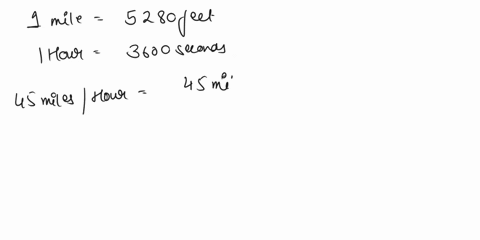 1 mile = 5280 feet
1 Hour = 3600 seconds
45 miles / Hour = 45 mi